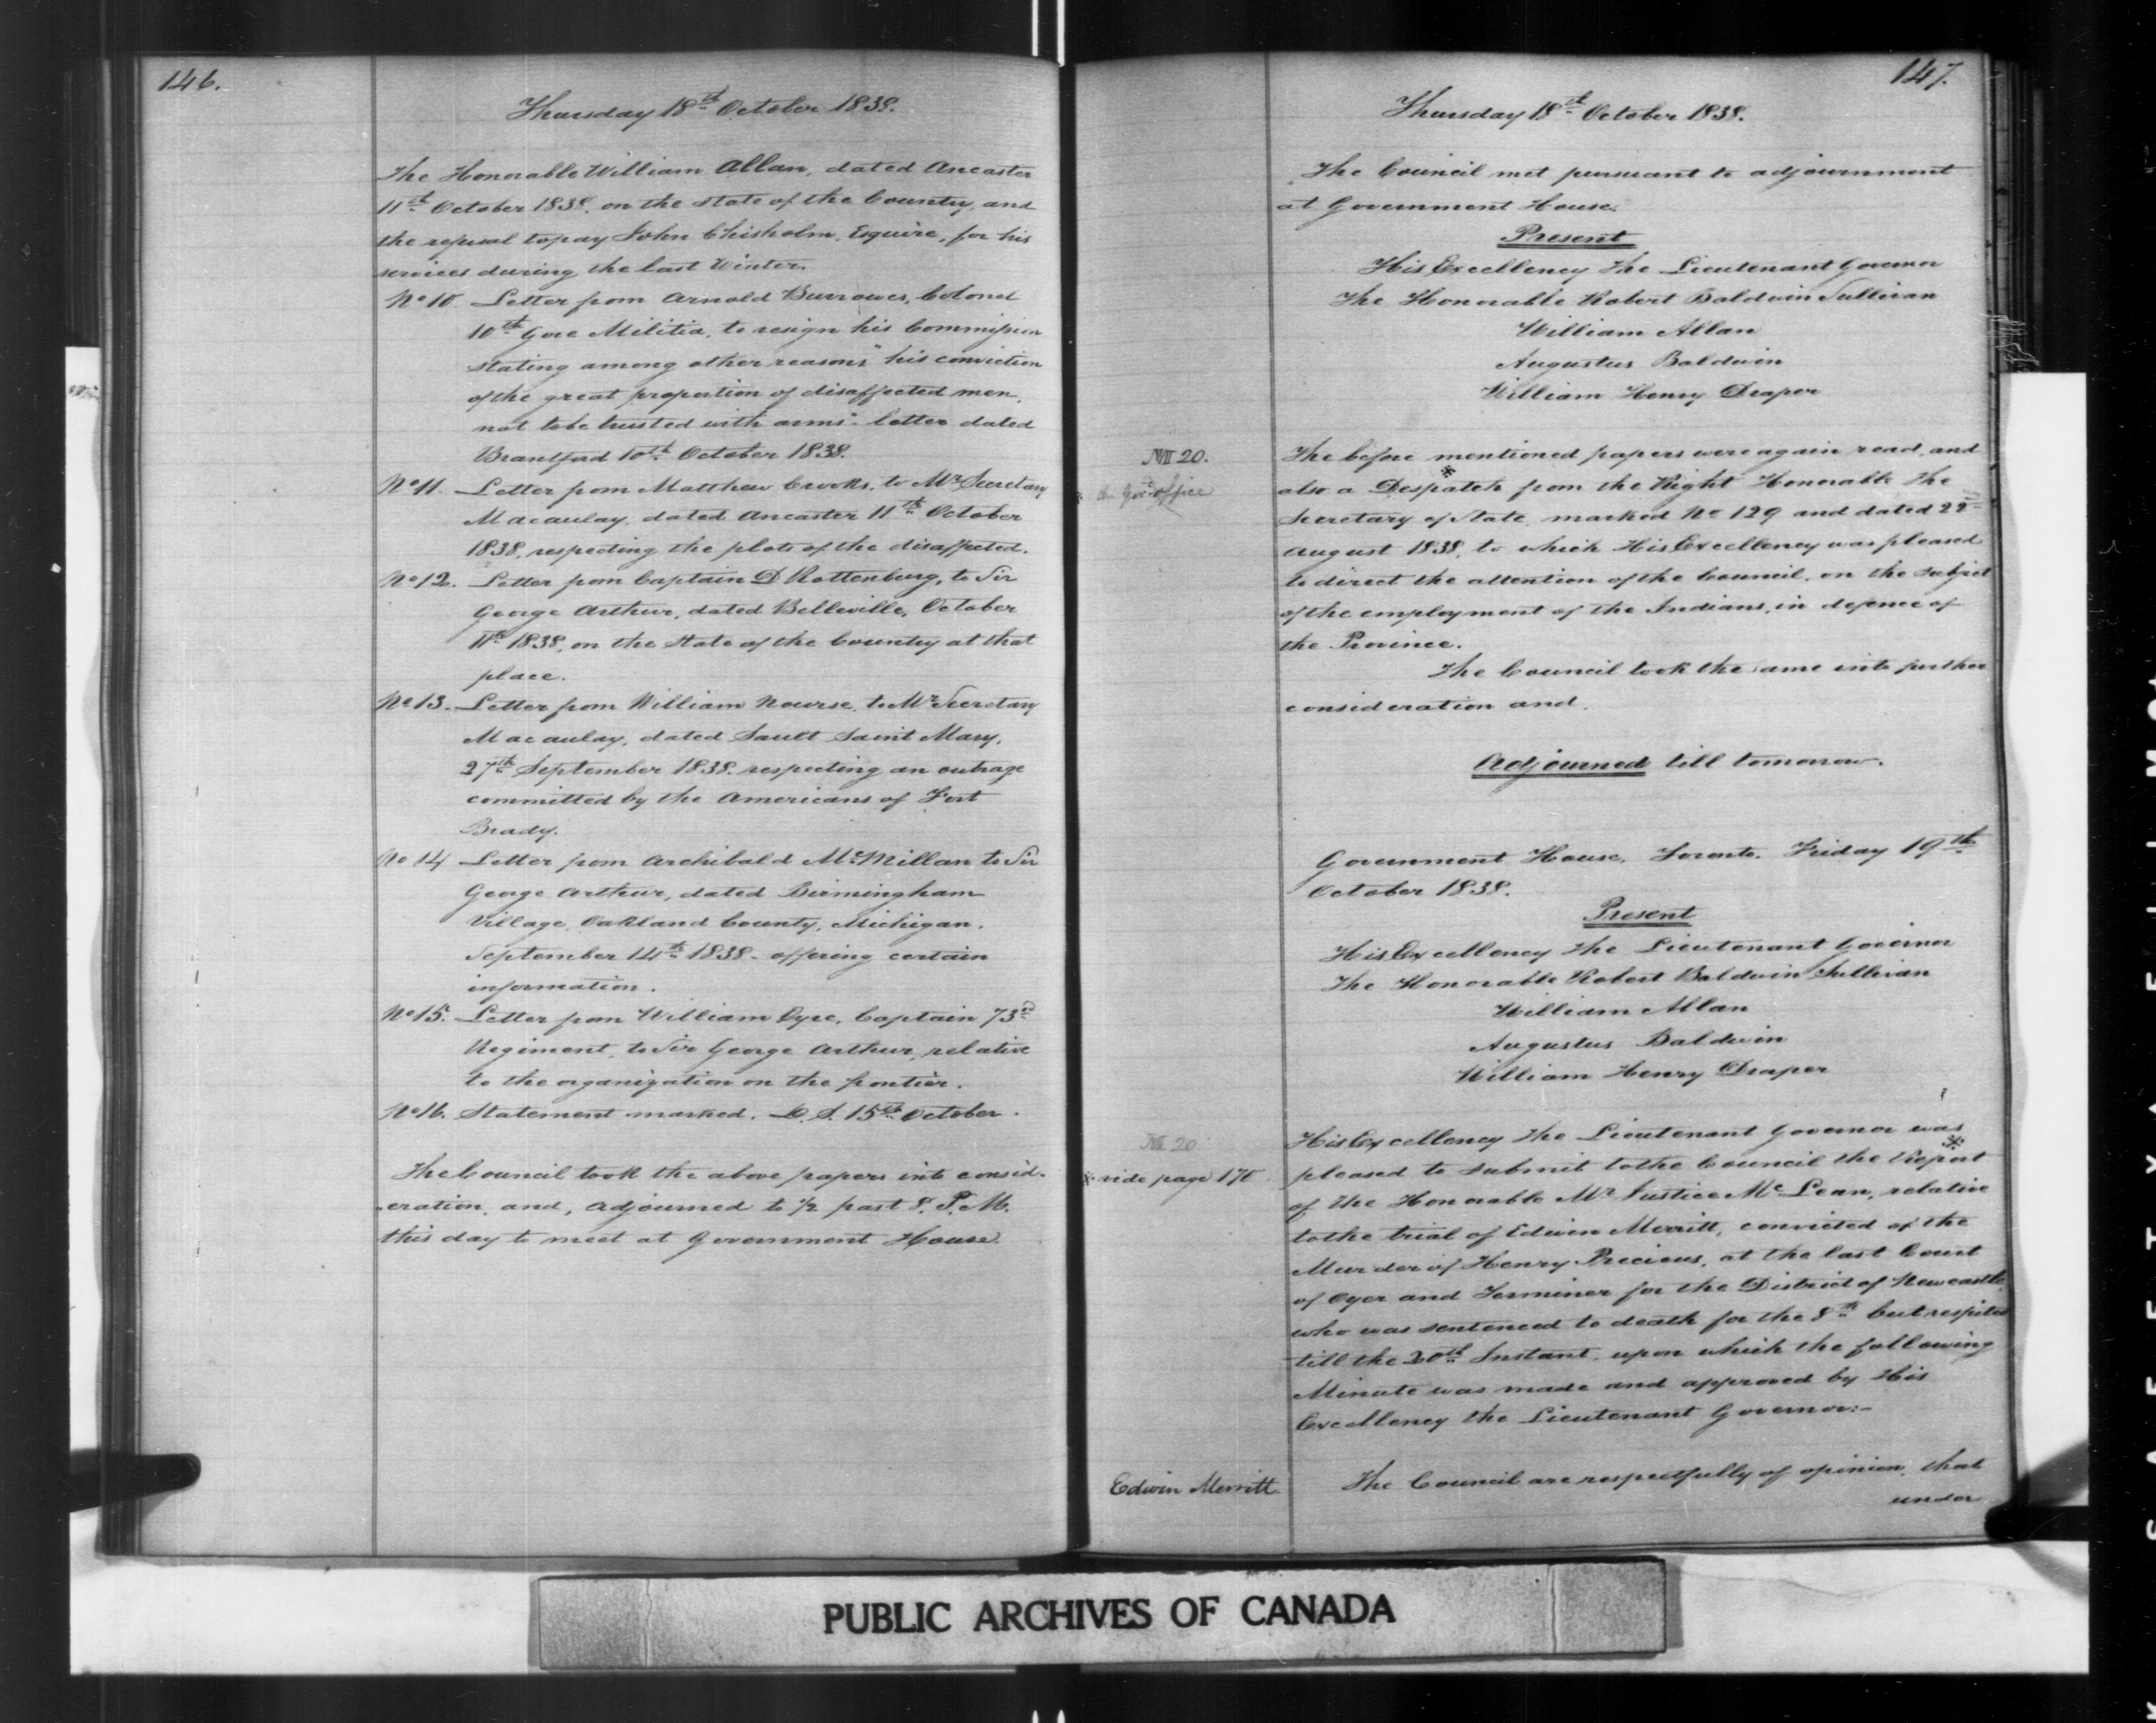 146.
Thursday 18th October 1838.
The Honorable William Allan, dated Ancaster
11th October 1838, on the state of the Country, and
the refusal to pay John Chisholm, Esquire, for his
services during the last Winter.
No 10. Letter from Arnold Burrowes, Colonel
10th Gore Militia, to resign his Commission
stating among other reasons "his conviction
of the great proportion of disaffected men,
not to be trusted with arms" letter dated
Brantford 10th October 1838.
No 11. Letter from Matthew Crooks, to Mr Secretary
Macaulay, dated Ancaster 11th October
1838, respecting the plots of the disaffected.
No 12. Letter from Captain D Rottenburg, to Sir
George Arthur, dated Belleville, October
11th 1838, on the State of the Country at that
place.
No 13. Letter from William Nourse, to Mr Secretary
Macaulay, dated Sault Saint Mary,
27th September 1838. respecting an outrage
committed by the Americans of Fort
Brady.
No 14 Letter from Archibald McMillan to Sir
George Arthur, dated Birmingham
Village, Oakland County, Michigan,
September 14th 1838 - offering certain
information.
No 15. Letter from William Eyre, Captain 73rd
Regiment, to Sir George Arthur, relative
to the organization on the frontier.
No 16. Statement marked, L. S. 15th October.
The Council took the above papers into consid-
-eration, and, adjourned to ½ past 8. P. M.
this day to meet at Government House.
147.
Thursday 18th October 1838.
The Council met pursuant to adjournment
at Government House.
Present
His Excellency The Lieutenant Governor
The Honorable Robert Baldwin Sullivan
William Allan
Augustus Baldwin
William Henry Draper
20.
The before mentioned papers were again read, and
also a Despatch from the Right Honorable The
Govr office
Secretary of State, marked No 129 and dated 22d
August 1838, to which His Excellency was pleased
to direct the attention of the Council, on the subject
of the employment of the Indians, in defence of
the Province.
The Council took the same into further
consideration and.
Adjourned till tomorrow.
Government House, Toronto. Friday 19th
October 1838.
Present
His Excellency The Lieutenant Governor
The Honorable Robert Baldwin Sullivan
William Allan
Augustus Baldwin
William Henry Draper
20
His Excellency The Lieutenant Governor was
* vide page 170
pleased to submit to the Council the Report *
of The Honorable Mr Justice McLean, relative
to the trial of Edwin Merritt, convicted of the
Murder of Henry Precious, at the last Court
of Oyer and Terminer for the District of Newcastle,
who was sentenced to death for the 8th but respited
till the 20th Instant, upon which the following
Minute was made and approved by His
Excellency the Lieutenant Governor:-
Edwin Merritt.
The Council are respectfully of opinion, that
under
PUBLIC ARCHIVES OF CANADA